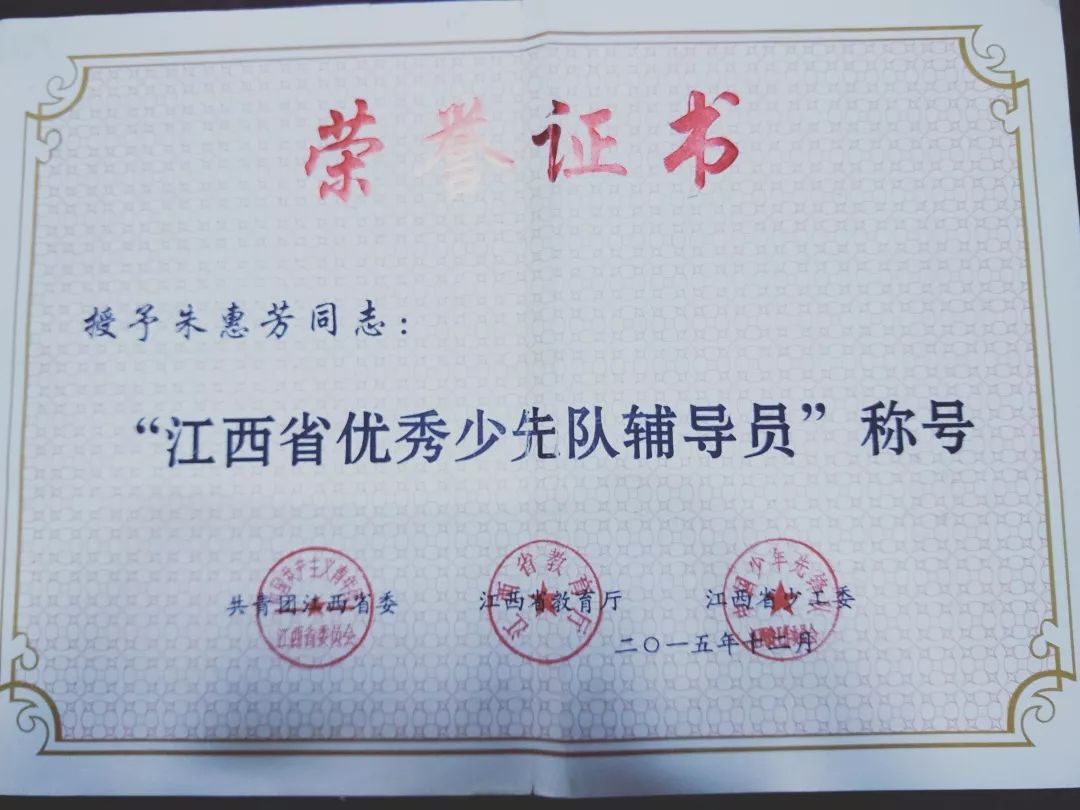 荣誉证书
授予朱惠芳同志:
“江西省优秀少先队辅导员”称号
共青团江西省委 江西省教育厅 江西省少工委
江西省委员会
江西省教育厅
二〇一五年十二月